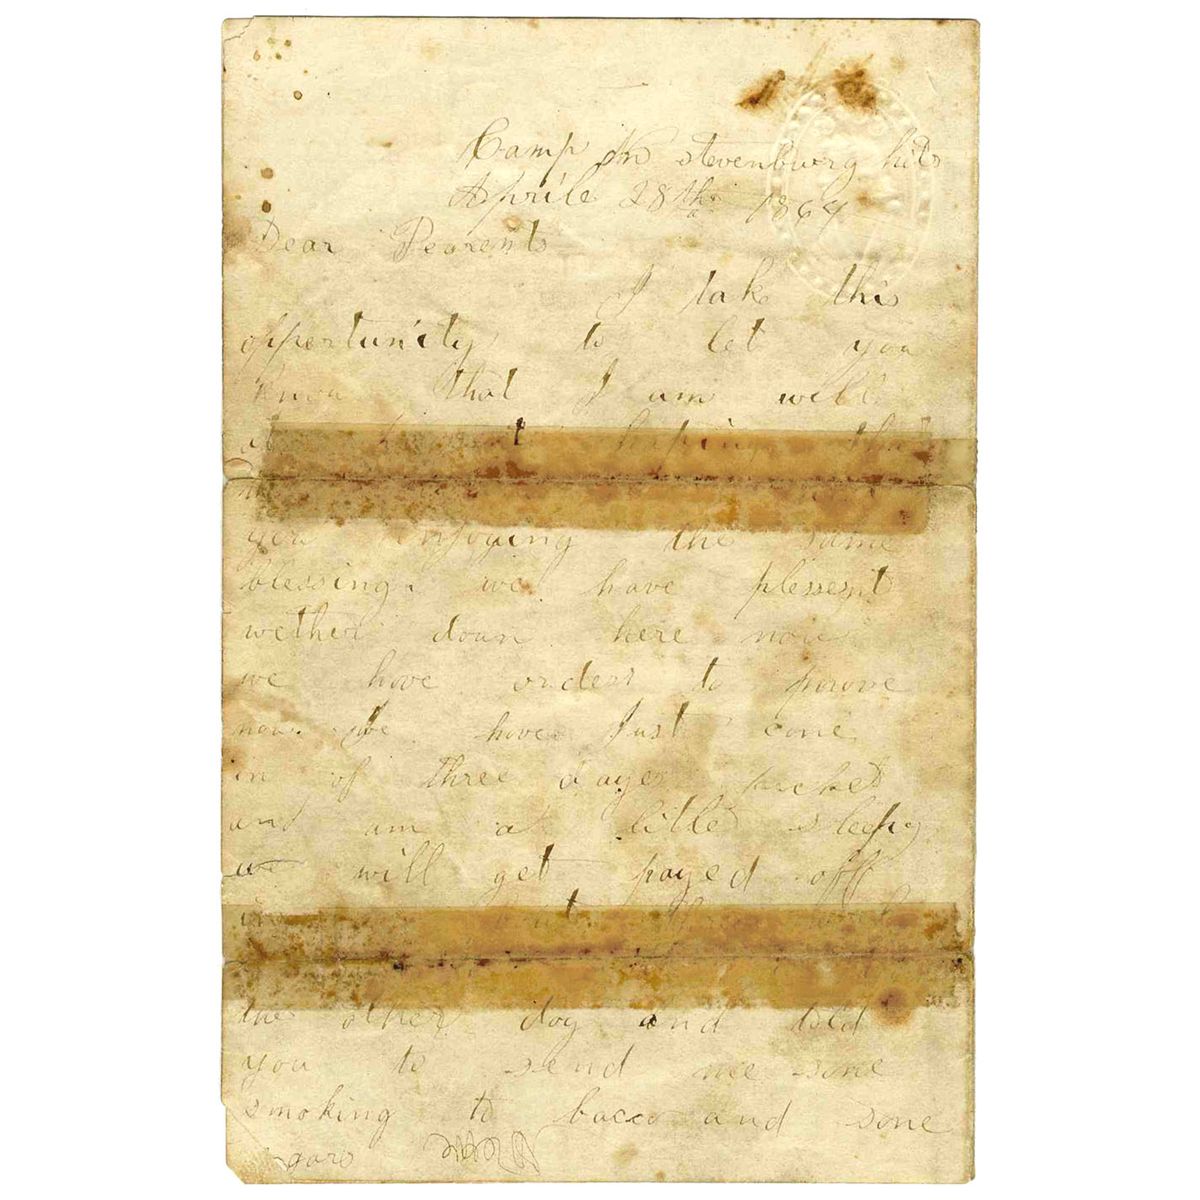 Camp On stevenburg hits
Aprile 28th 1864
Dear Pearents
I take this
opportunity to let you
know that I am well
hoping that
you enjoying the same
blessing. we have plessent
wether doun here now
we hove orders to
now. We hove Just cone
in of three dayes picket
and am a little sleepy
we will get payed off
the other doy and told
you to send me sone
smoking to bacco and sone